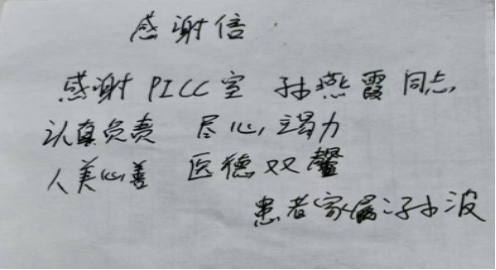 感谢信
感谢PICC室 孙燕霞同志
认真负责 尽心竭力
人美心善 医德双馨
患者家属:孙波